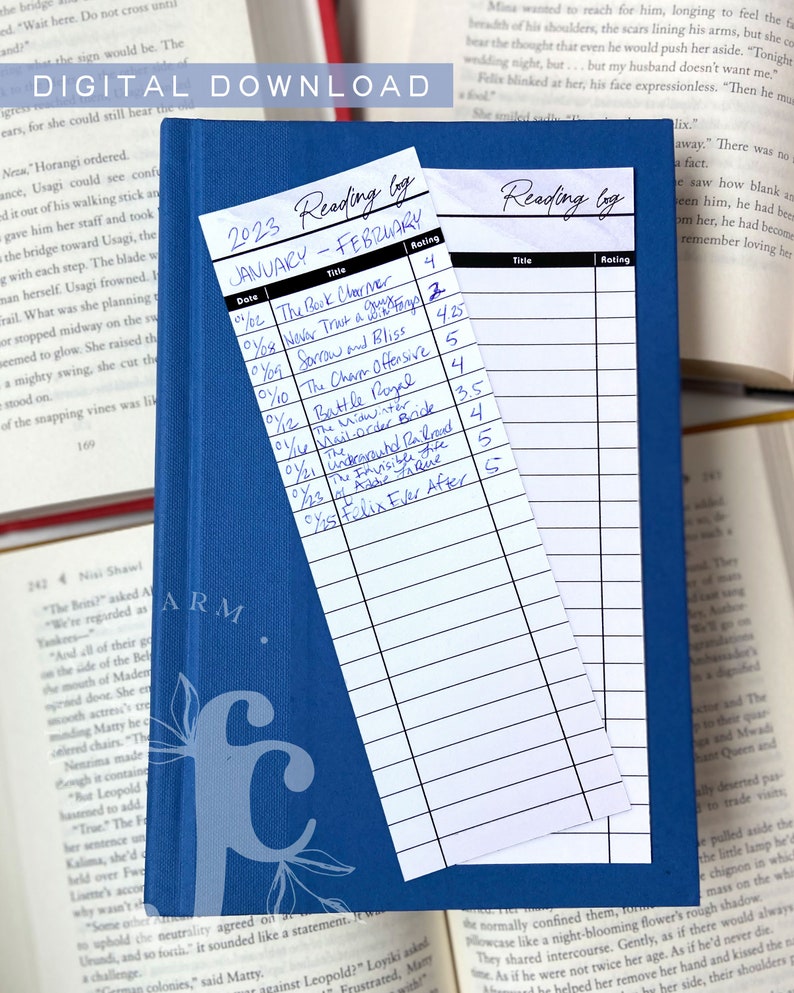 the bridge and
ed. "Wait here. Do not cross until
and?"
ring what the sign would be. The
DIGITAL DOWNLOAD
ears, for she could still hear the
Neza," Horangi ordered.
away, Usagi could see
it out of his walking stick and
gave him her staff and took
the bridge toward Usagi, the
g with each step. The blade w
man herself. Usagi frowned. If
rail. What was she planning t
or stopped midway on the sw
eemed to glow. She raised th
a mighty swing, she cut the
e stood on.
of the snapping vines was lik
169
Mina wanted to reach for him, longing to feel the
breadth of his shoulders, the scars lining his arms, but she co
bear the thought that even he would push her aside. "Tonight
wedding night, but . . . but my husband doesn't want me."
Felix blinked at her, his face expressionless. "Then he mu
a fool."
She smiled sadly.
away." There was no
a fact.
saw how blank and
seen him, he had been
her, he had become
remember loving her
Reading log
2023
JANUARY – FEBRUARY
Date Title Rating
01/02 The Book Charmer 4
01/08 Never Trust a guy with Fangs 2
01/09 Sorrow and Bliss 4.25
01/10 The Charm Offensive 5
01/12 Battle Royal 4
01/16 The Midwinter Mail-Order Bride 3.5
01/21 The Underground Railroad 4
01/23 The Invisible Life of Addie LaRue 5
01/25 Felix Ever After 5
Reading log
Title Rating
ARM.
fc
242 Nisi Shawl
"The Brits?" asked
"We're regarded as
Yankees—"
"And all of their
on the side of the Belg
the mouth of Madem
opened door. She
smooth actress's
Matty he
chairs. "The
Nenzima made
though it containe
"But Leopold
hastened to add.
"True." The
her sentence un
Kalima, she'd
held over Fwe
Lisette's acco
why wasn't s
"Some other African
to uphold the neutrality agreed on at
Urundi, and so forth." it sounded like a statement. It was
a challenge.
"German colonies," said Matty.
against Leopold?" Loyiki asked.
Frustrated, Matty
243
added.
so, de-
such a
They
of mars
cast sang
Author-
We'll go on
ngratulations
Ambassador's
in a dignified
ctor and The
to their quar-
nga and Mwadi
hant Queen and
ly deserted pas-
to trade visits;
pulled aside the
the little lamp he'd
chignon in which
mass on the white
pillowcase like a night-blooming flower's rough shadow.
They shared intercourse. Gently, as if there would always
time. As if he were not twice her age. As if he'd never die.
Afterward he helped her remove her hand and kissed the n